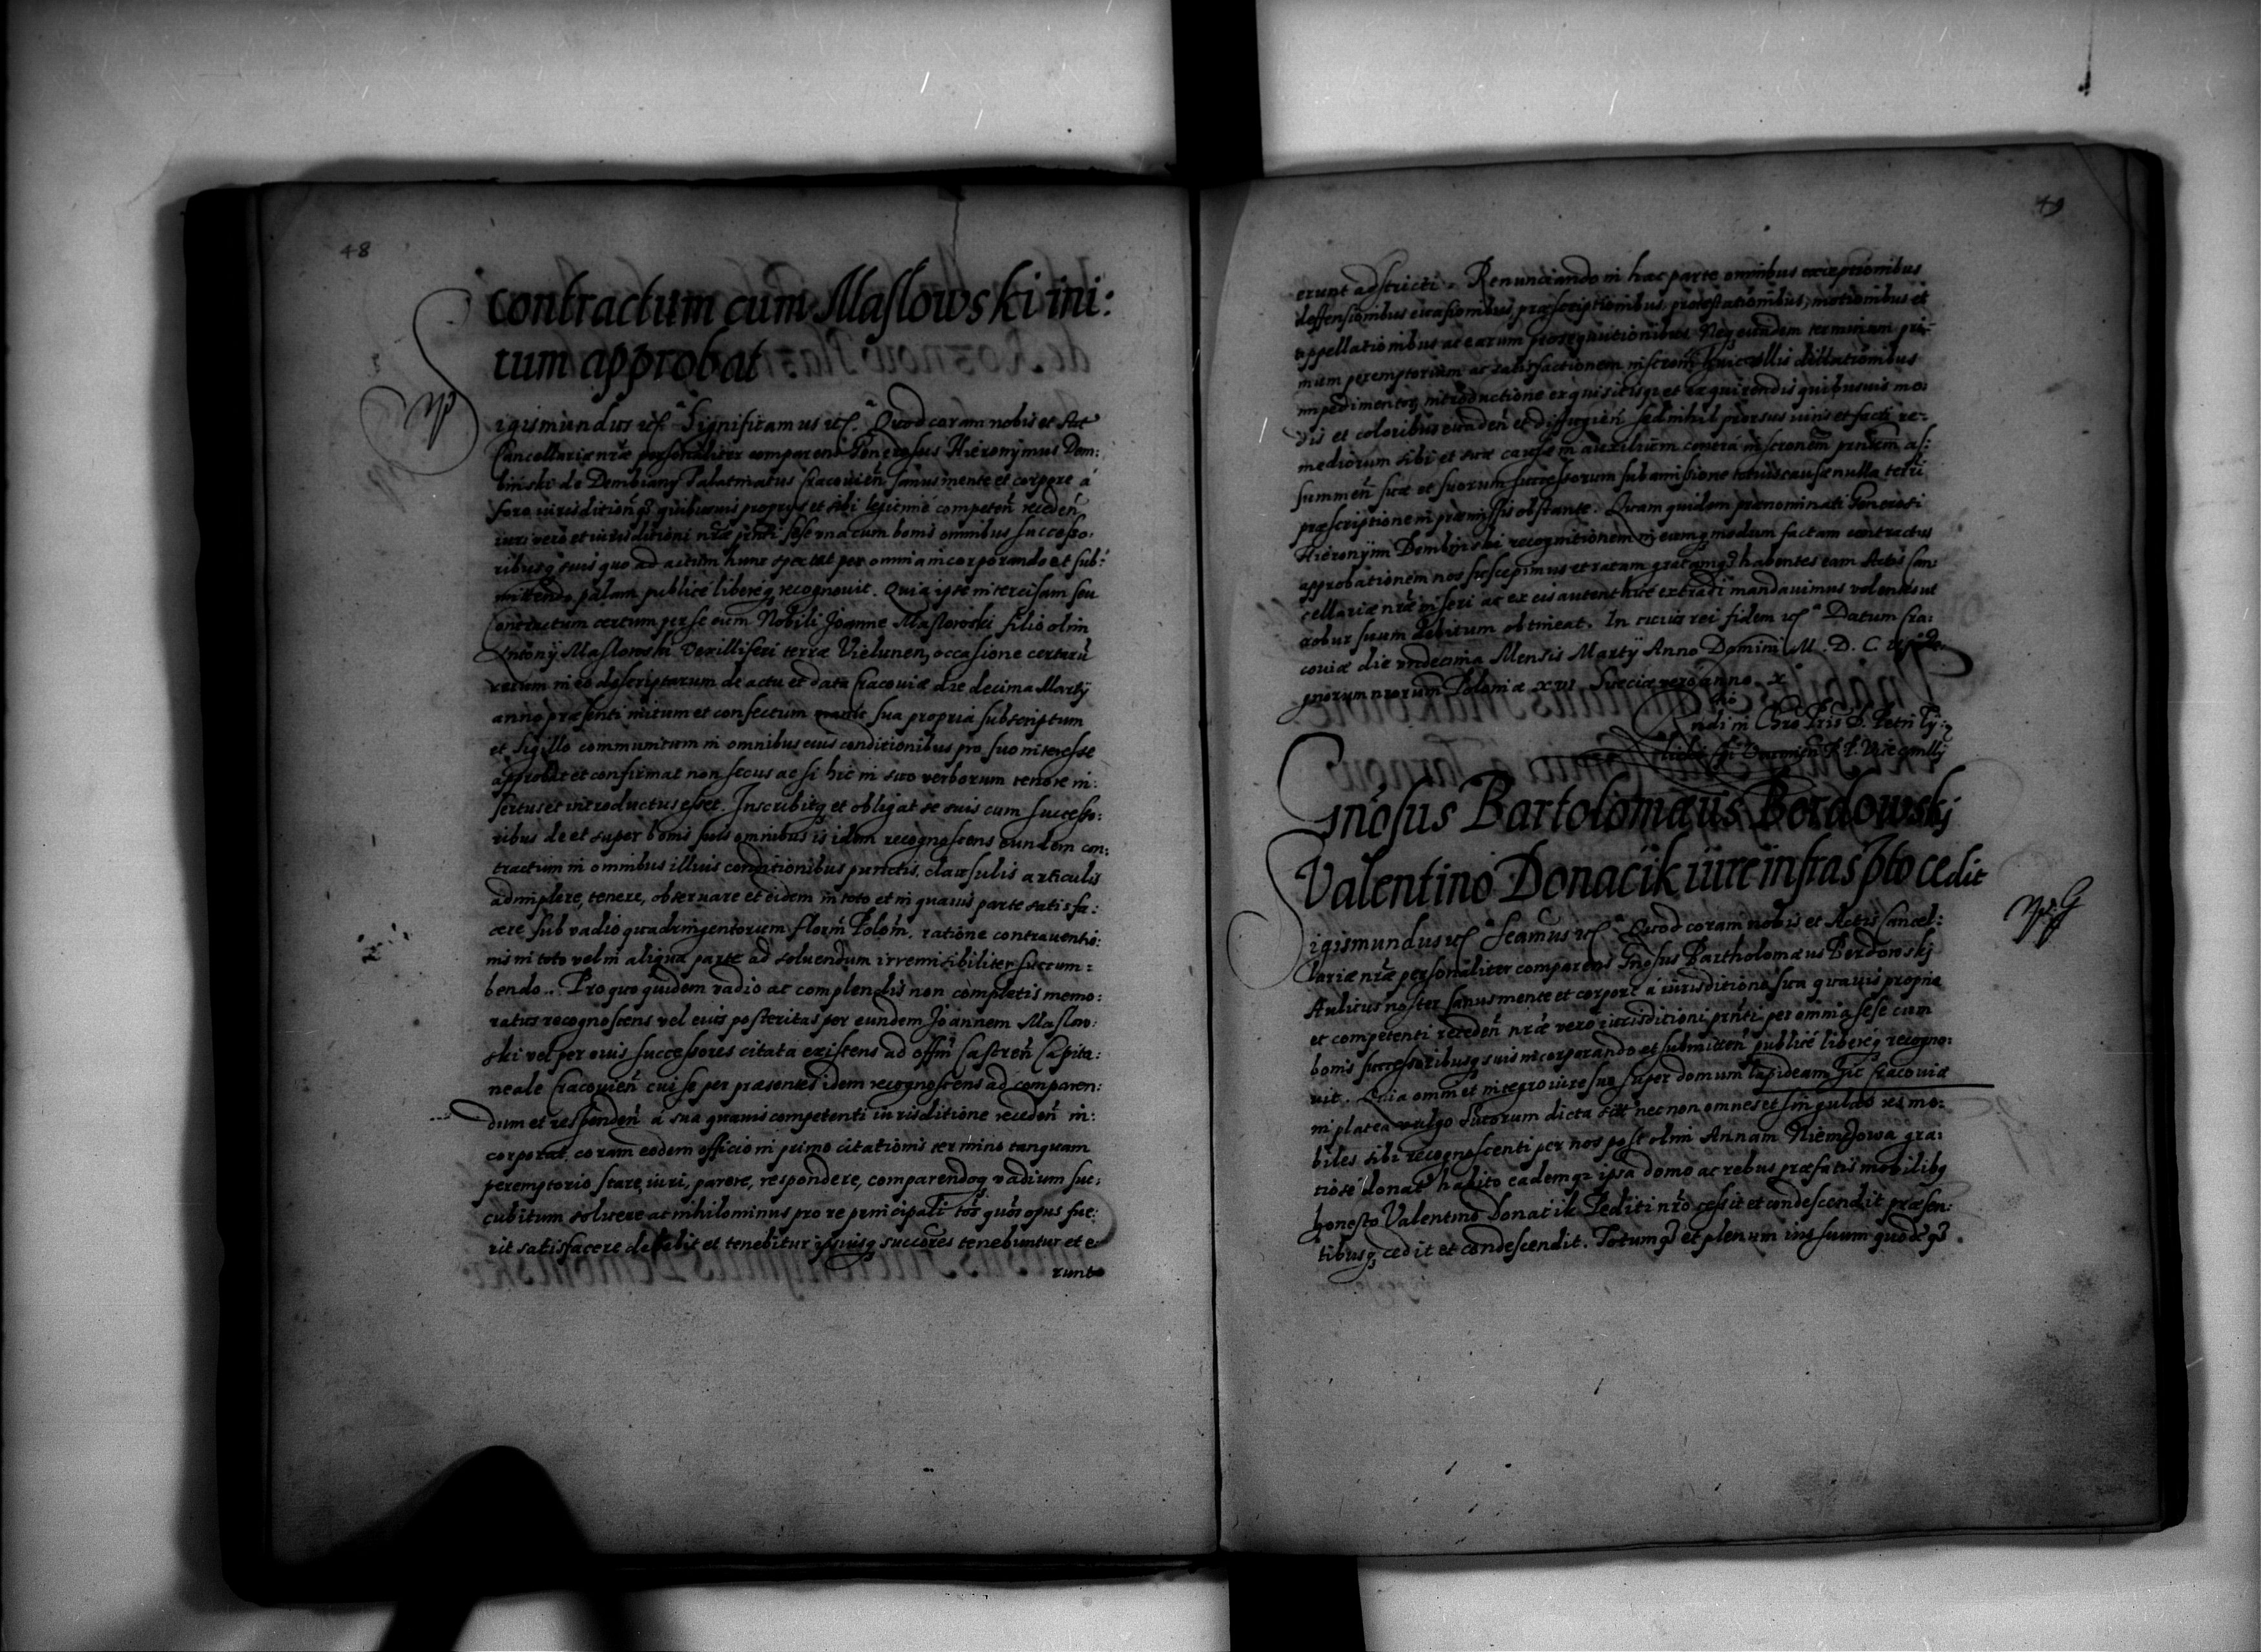 48
contractum cum Maslowski ini:
tum approbat.
Sigismundus etc. Significamus etc. Quod coram nobis et Act
Cancellariæ nræ personaliter comparens Generosus Hieronymus Dem:
biński de Dembiany Palatinatus Cracovień sanus mente et corpore á
foro iurisditionq3 quibusvis proprys et sibi legitimé competeñ recedeñ
iuri vero et iurisditioni nræ pñti sese una cum bonis omnibus successo:
ribusq suis quo ad actum hunc spectat per omnia incorporando et sub:
mittendo palam publicé libereq recognovit. Quia ipse intercisam seu
Contractum certum per se cum Nobili Joanne Maslowski filio olim
Antony Maslowski Vexilliferi terræ Vielunen, occasione certarũ
rerum in eo descriptarum de actu et data Cracoviæ die decima Marty
anno præsenti initum et confectum manu sua propria subscriptum
et sigillo communitum in omnibus eius conditionibus pro suo interesse
approbat et confirmat non secus ac si hic in suo verborum tenore in:
sertus et introductus esset. Inscribitq et obligat se suis cum successo:
ribus de et super bonis suis omnibus is idem recognoscens eundem con:
tractum in omnibus illius conditionibus punctis, clausulis articulis
adimplere, tenere, observare et eidem in toto et in quavis parte satisfa:
cere sub vadio quadringentorum floreñ Poloñ. ratione contraventio:
nis in toto vel in aliqua parte ad solvendum irremisibiliter succum:
bendo. Pro quo quidem vadio ac complendis non completis memo:
ratus recognoscens vel eius posteritas per eundem Joannem Maslow:
ski vel per eius successores citata existens ad offiñ Castreñ Capita:
neale Cracovieñ cui se per præsentes idem recognoscens ad comparen:
dum et respondeñ á sua quavis competenti iurisditione recedeñ in:
corporat, coram eodem officio in primo citationis termino tanquam
peremptorio stare, iuri, parere, respondere, comparendoq vadium suc:
cubitum solvere ac nihilominus pro re principali toś quoś opus fue:
rit satisfacere debebit et tenebitur ipsiusq succores tenebuntur et e:
runt
49
erunt adstricti. Renunciando in hac parte omnibus exceptionibus
deffensionibus evasionibus, præscriptionibus, protestationibus, motionibus et
appellationibus ac earum prosequutionibus. Neq evadem terminum pri:
mum peremptorium ac satisfactionem ullis dillationibus
impedimentorq introductione exquisitisq et exquirendis quibusvis mo:
dis et coloribus evadeñ et diffugieñ sed nihil prorsus iuris et facti re:
mediorum sibi et suæ causæ in auxilium contrá inscronem pñtem as:
summeñ suæ et suorum successorum sub amissione totius causæ nulla terri
præscriptione in præmissis obstante. Quam quidem prænominati Generosi
Hieronymi Dembinski recognitionem in eumq modum factam contractus
approbationem nos suscepimus et ratam gratamq3 habentes eam Actis Can:
cellariæ nræ inseri ac ex eis autenthicé extradi mandavimus volentes ut
robur suum debitum obtineat. In cuius rei fidem etc. Datum Cra:
coviæ die undecima Mensis Marty Anno Domini M. D. C.
gnorum nrorum Poloniæ xvi Sveciæ vero anno x
ndi in Chro Pris D. Petri Ty:
Gnosus Bartolomæus Bordowskj
Valentino Donacik iure infrasspto cedit
Sigismundus etc. Scamus etc. Quod coram nobis et Actis Cancel:
lariæ nræ personaliter comparens Gnosus Bartholomæus Bordowskj
Aulicus noster sanus mente et corpore á iurisditione sua quavis propria
et competenti recedeñ nræ vero iurisditioni pñti per omnia sese cum
bonis successoribusq suis incorporando et submitteñ publicé libereq recogno:
vit. Quia omni et integro iure suo super domum lapideam hic Cracoviæ
in platea vulgo Sutorum dicta sita necnon omnes et singulas res mo:
biles sibi recognoscenti per nos post olim Annam Niemczowa gra:
tiosé donat habito eademq ipsa domo ac rebus præfatis mobilibq
honesto Valentino Donacik Pediti nro cessit et condescendit præsen:
tibusq cedit et condescendit. Totumq3 et plenum ius suum quodcq3